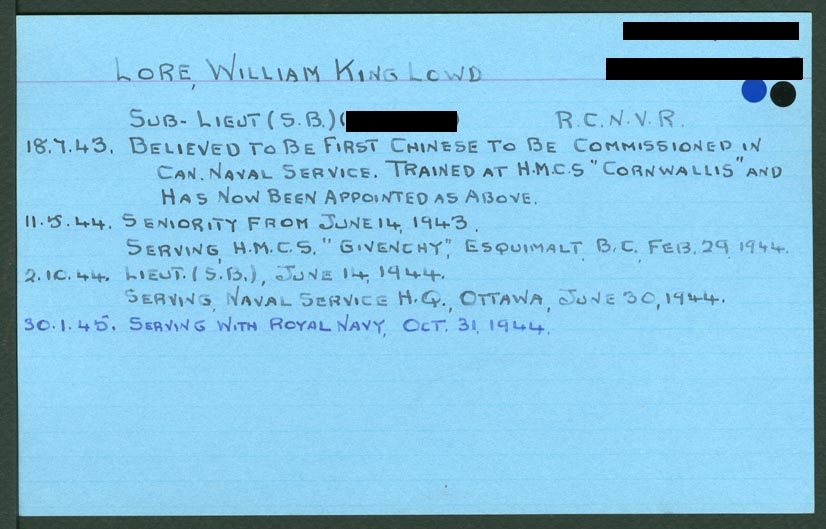 LORE, WILLIAM KING LOWD
SUB-LIEUT (S.B.) ( ) R.C.N.V.R.
18.7.43. BELIEVED TO BE FIRST CHINESE TO BE COMMISSIONED IN
CAN. NAVAL SERVICE. TRAINED AT H.M.C.S "CORNWALLIS" AND
HAS NOW BEEN APPOINTED AS ABOVE.
11.5.44. SENIORITY FROM JUNE 14, 1943.
SERVING, H.M.C.S. "GIVENCHY", ESQUIMALT, B.C, FEB. 29, 1944.
2.10.44. LIEUT. (S.B.), JUNE 14, 1944.
SERVING, NAVAL SERVICE H.Q., OTTAWA, JUNE 30, 1944.
30.1.45. SERVING WITH ROYAL NAVY, OCT. 31, 1944.